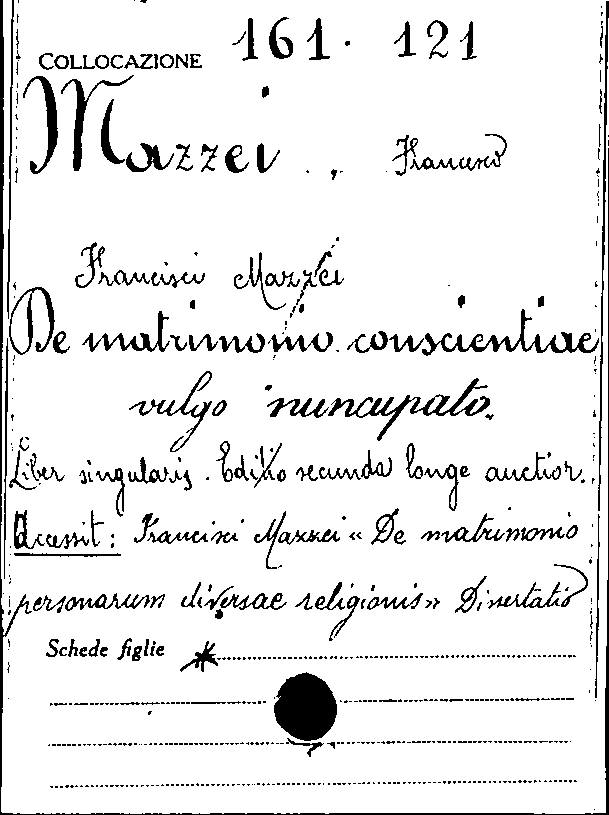 COLLOCAZIONE 161. 121
Mazzei, Francesco
Francisci Mazzei
De matrimonio conscientiae
vulgo nuncupato.
Liber singularis. Editio secunda longe auctior.
Accessit: Francisci Mazzei « De matrimonio
personarum diversae religionis » Dissertatio
Schede figlie *